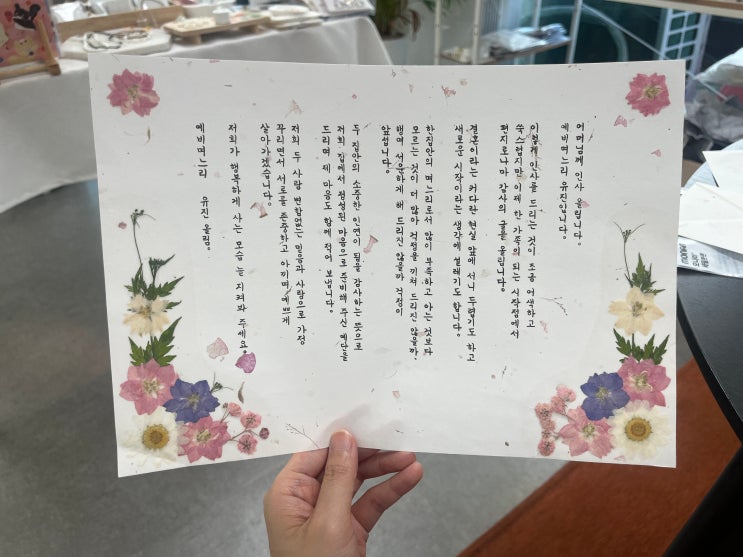 어머님께 인사 올립니다.
예비며느리 유진입니다.
이렇게 인사를 드리는 것이 조금 어색하고
쑥스럽지만 이제 한 가족이 되는 시작점에서
편지로나마 감사의 글을 올립니다.
결혼이라는 커다란 현실 앞에 서니 두렵기도 하고
새로운 시작이라는 생각에 설레기도 합니다.
한집안의 며느리로서 많이 부족하고 아는 것보다
모르는 것이 더 많아 걱정을 끼쳐 드리진 않을까,
행여 서운하게 해 드리진 않을까 걱정이
앞섭니다.
두 집안의 소중한 인연이 됨을 감사하는 뜻으로
저희 집에서 정성된 마음으로 준비해 주신 예단을
드리며 제 마음도 함께 적어 보냅니다.
저희 두 사람 변함없는 믿음과 사랑으로 가정
꾸리면서 서로를 존중하고 아끼며 예쁘게
살아가겠습니다.
저희가 행복하게 사는 모습 늘 지켜봐 주세요.
예비며느리 유진 올림.